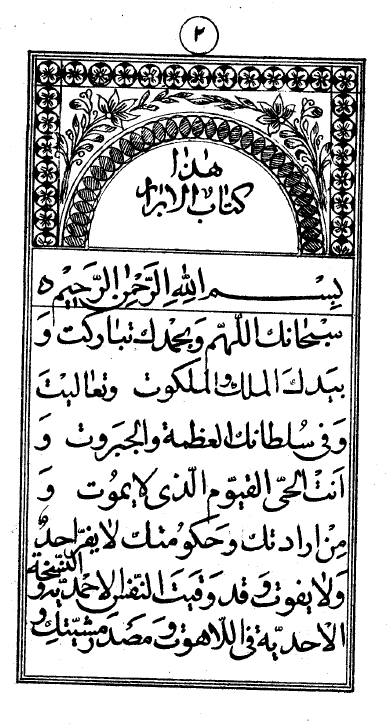 ٢
هذا
كتاب الابرار
بِسْمِ اللهِ الرَّحْمٰنِ الرَّحِيْمِ ه
سبحانك اللّٰهم وبحمدك تباركت وَ
بيدك الملك والملكوت وتعاليت
وَفي سُلطانك العظمة والجبروت وَ
اَنتَ الحَيّ القيّوم الّذي لايمُوت وَ
مِنْ ارادتك وَحكومتك لايفرّ احدٌ
وَلايفوت وَقد وقيت النّفس الاحمديّة وَ
الاحديّة في اللاهوت وَمصدر مشيّتك وَ